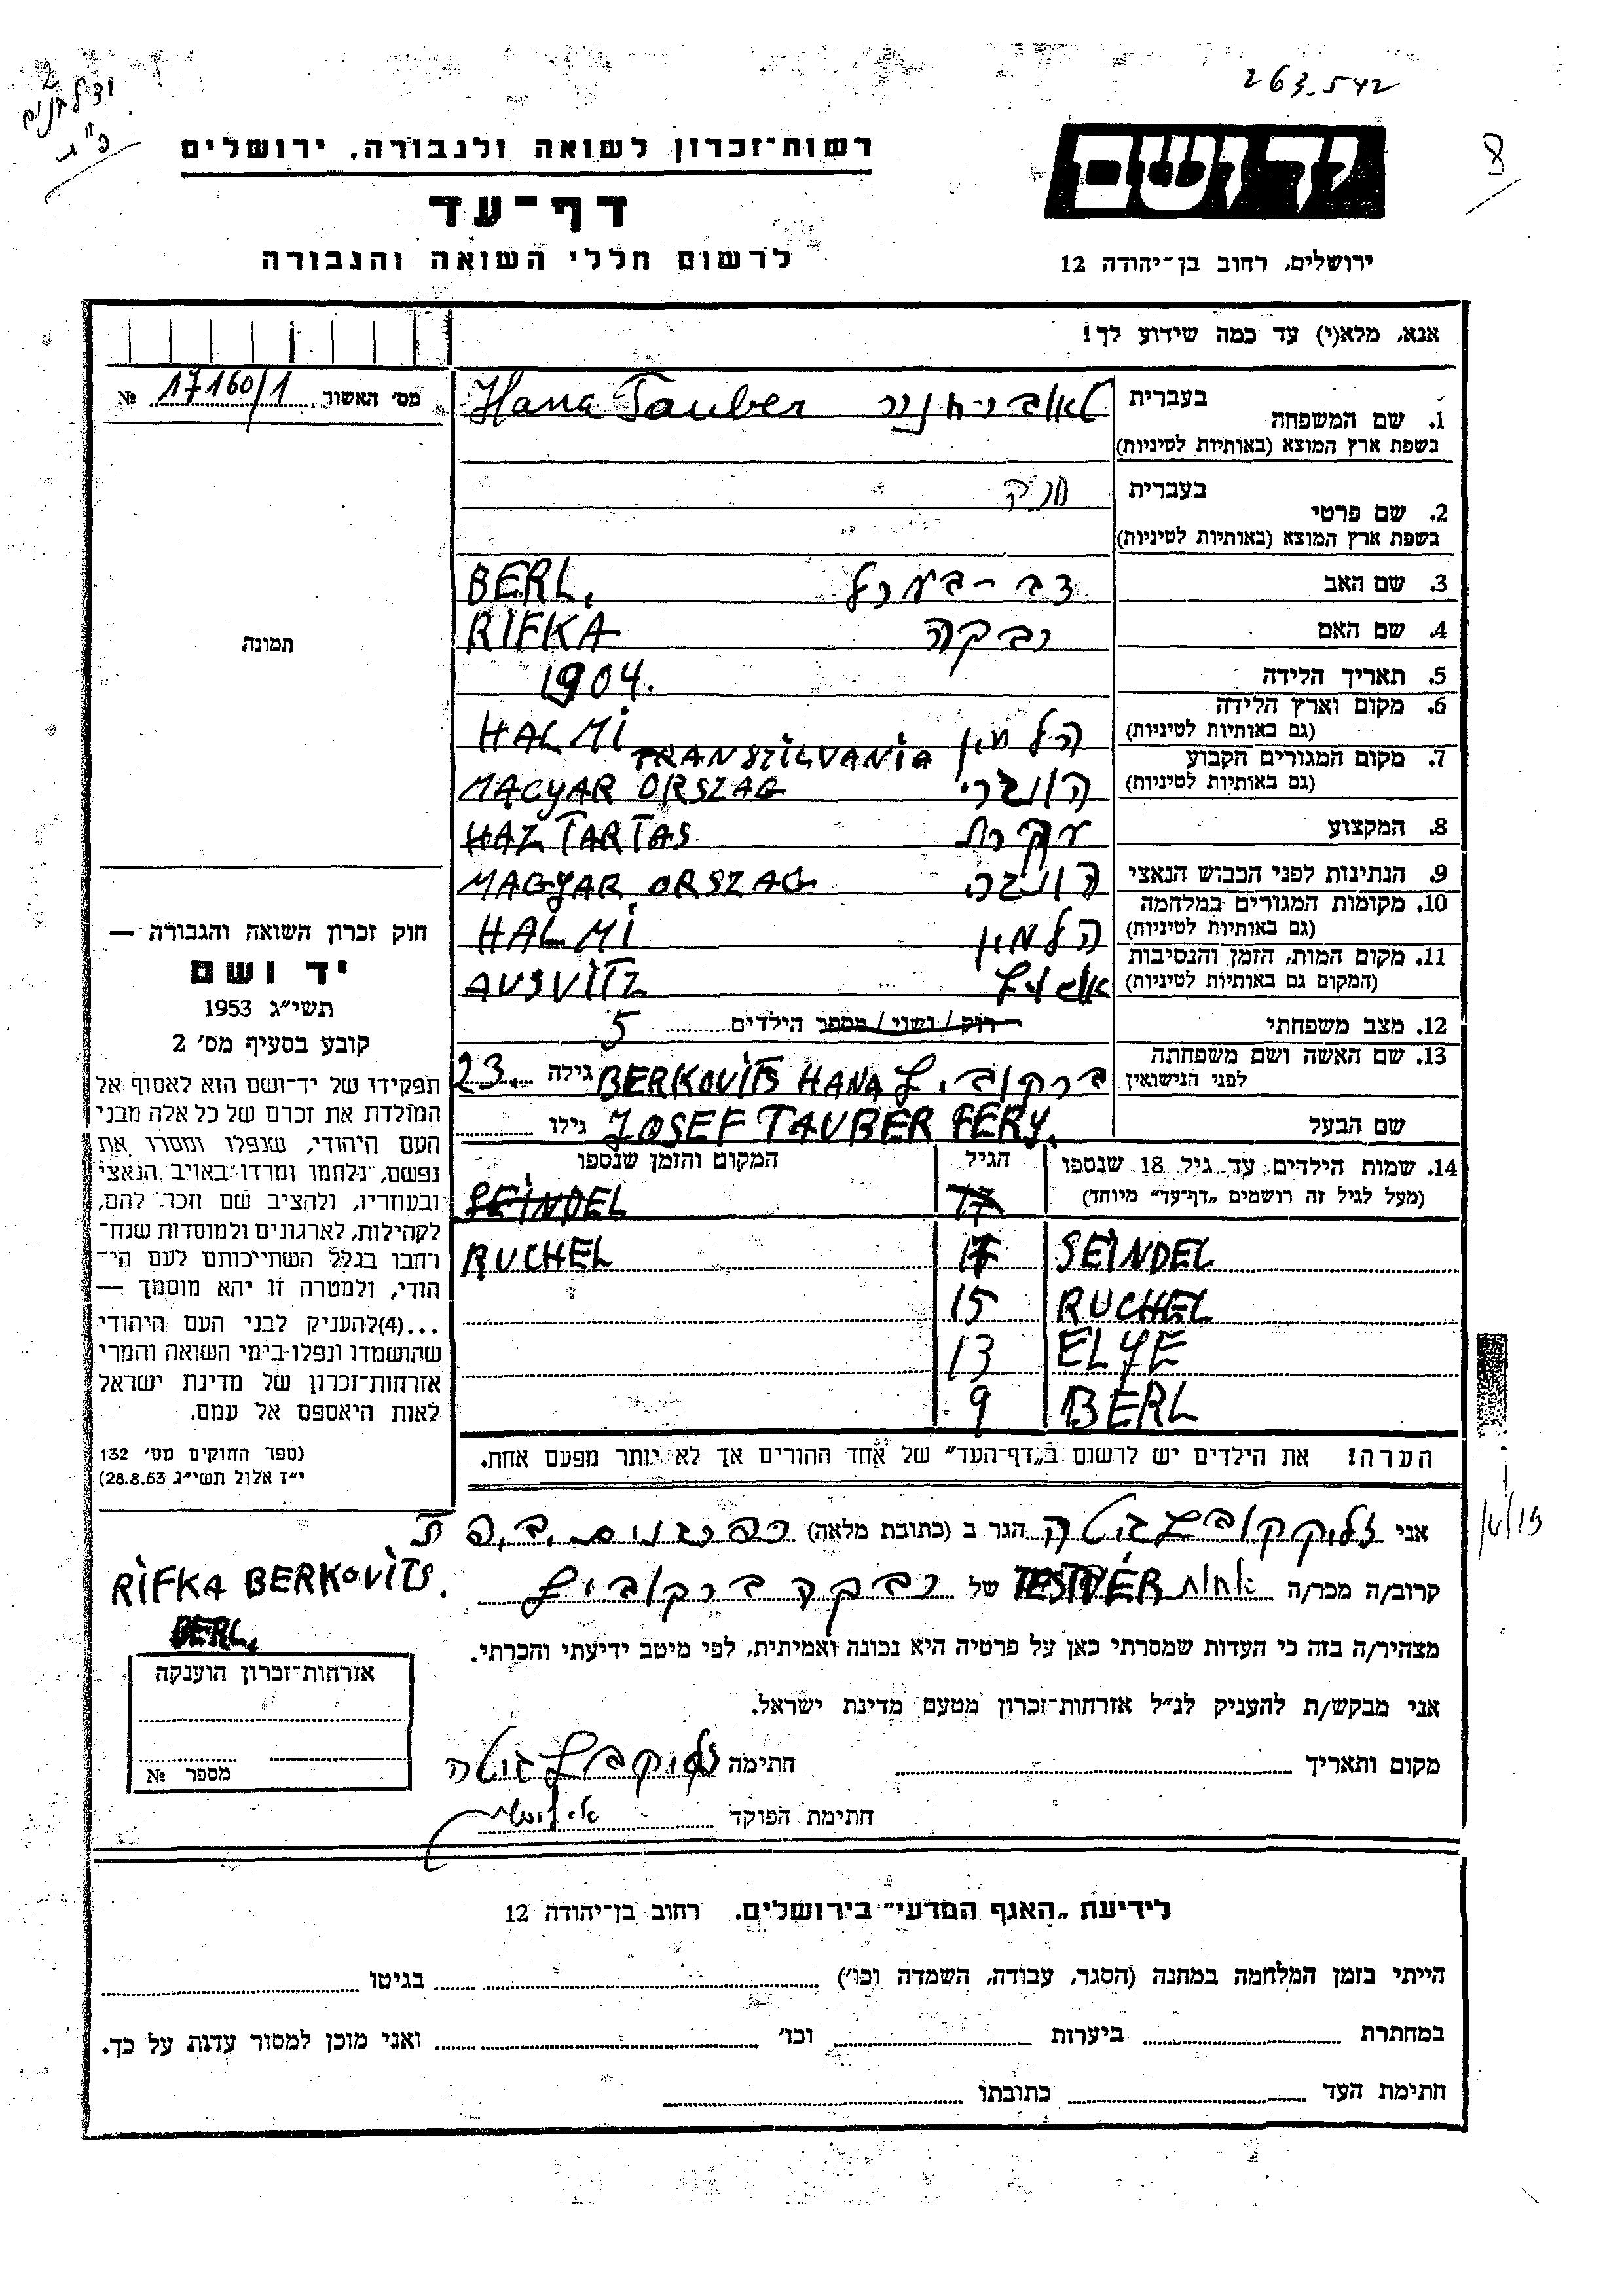 263.542
8
רשות־זכרון לשואה ולגבורה, ירושלים
יד ושם
דף־עד
לרשום חללי השואה והגבורה
ירושלים, רחוב בן־יהודה 12
אנא, מלא(י) עד כמה שידוע לך!
מס׳ האשור 17160/1 №
1. שם המשפחה בעברית Hana Tauber
בשפת ארץ המוצא (באותיות לטיניות)
2. שם פרטי בעברית
בשפת ארץ המוצא (באותיות לטיניות)
3. שם האב BERL.
4. שם האם רבקה RIFKA
5. תאריך הלידה 1904.
6. מקום וארץ הלידה HALMI
(גם באותיות לטיניות) TRANSZILVANIA
7. מקום המגורים הקבוע MAGYAR ORSZAG
(גם באותיות לטיניות)
8. המקצוע עקרת HAZ TARTAS
9. הנתינות לפני הכבוש הנאצי MAGYAR ORSZAG
10. מקומות המגורים במלחמה הלמין HALMI
(גם באותיות לטיניות)
11. מקום המות, הזמן והנסיבות AUSVITZ
(המקום גם באותיות לטיניות)
12. מצב משפחתי רוק / נשוי / מספר הילדים 5
13. שם האשה ושם משפחתה ברקוביץ BERKOVITS HANA גילה 23.
לפני הנישואין
שם הבעל JOSEF TAUBER FERY. גילו
14. שמות הילדים עד גיל 18 שנספו הגיל המקום והזמן שנספו
(מעל לגיל זה רושמים „דף־עד״ מיוחד) 17 SEINDEL
SEINDEL 17 RUCHEL
RUCHEL 15
ELYE 13
BERL 9
הערה! את הילדים יש לרשום ב„דף־העד״ של אחד ההורים אך לא יותר מפעם אחת.
תמונה
חוק זכרון השואה והגבורה —
יד ושם
תשי״ג 1953
קובע בסעיף מס׳ 2
תפקידו של יד־ושם הוא לאסוף אל
המולדת את זכרם של כל אלה מבני
העם היהודי, שנפלו ומסרו את
נפשם, נלחמו ומרדו באויב הנאצי
ובעוזריו, ולהציב שם וזכר להם,
לקהילות, לארגונים ולמוסדות שנח־
רחבו בגלל השתייכותם לעם הי־
הודי, ולמטרה זו יהא מוסמך —
...(4)להעניק לבני העם היהודי
שהושמדו ונפלו בימי השואה והמרי
אזרחות־זכרון של מדינת ישראל
לאות היאספם אל עמם.
(ספר החוקים מס׳ 132
י״ז אלול תשי״ג 28.8.53)
אני הגר ב (כתובת מלאה)
קרוב/ה מכר/ה אחות TESTVÉR של רבקה ברקוביץ
RIFKA BERKOVITS.
BERL.
מצהיר/ה בזה כי העדות שמסרתי כאן על פרטיה היא נכונה ואמיתית, לפי מיטב ידיעתי והכרתי.
אני מבקש/ת להעניק לנ״ל אזרחות־זכרון מטעם מדינת ישראל.
מקום ותאריך חתימה
חתימת הפוקד
אזרחות־זכרון הוענקה
מספר №
לידיעת „האגף המדעי״ בירושלים. רחוב בן־יהודה 12
הייתי בזמן המלחמה במחנה (הסגר, עבודה, השמדה וכו׳) בגיטו
במחתרת ביערות וכו׳ ואני מוכן למסור עדות על כך.
חתימת העד כתובתו